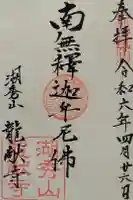 奉拝 令和六年四月廿六日
南無釋迦牟尼佛
湖秀山
龍献寺
湖秀山